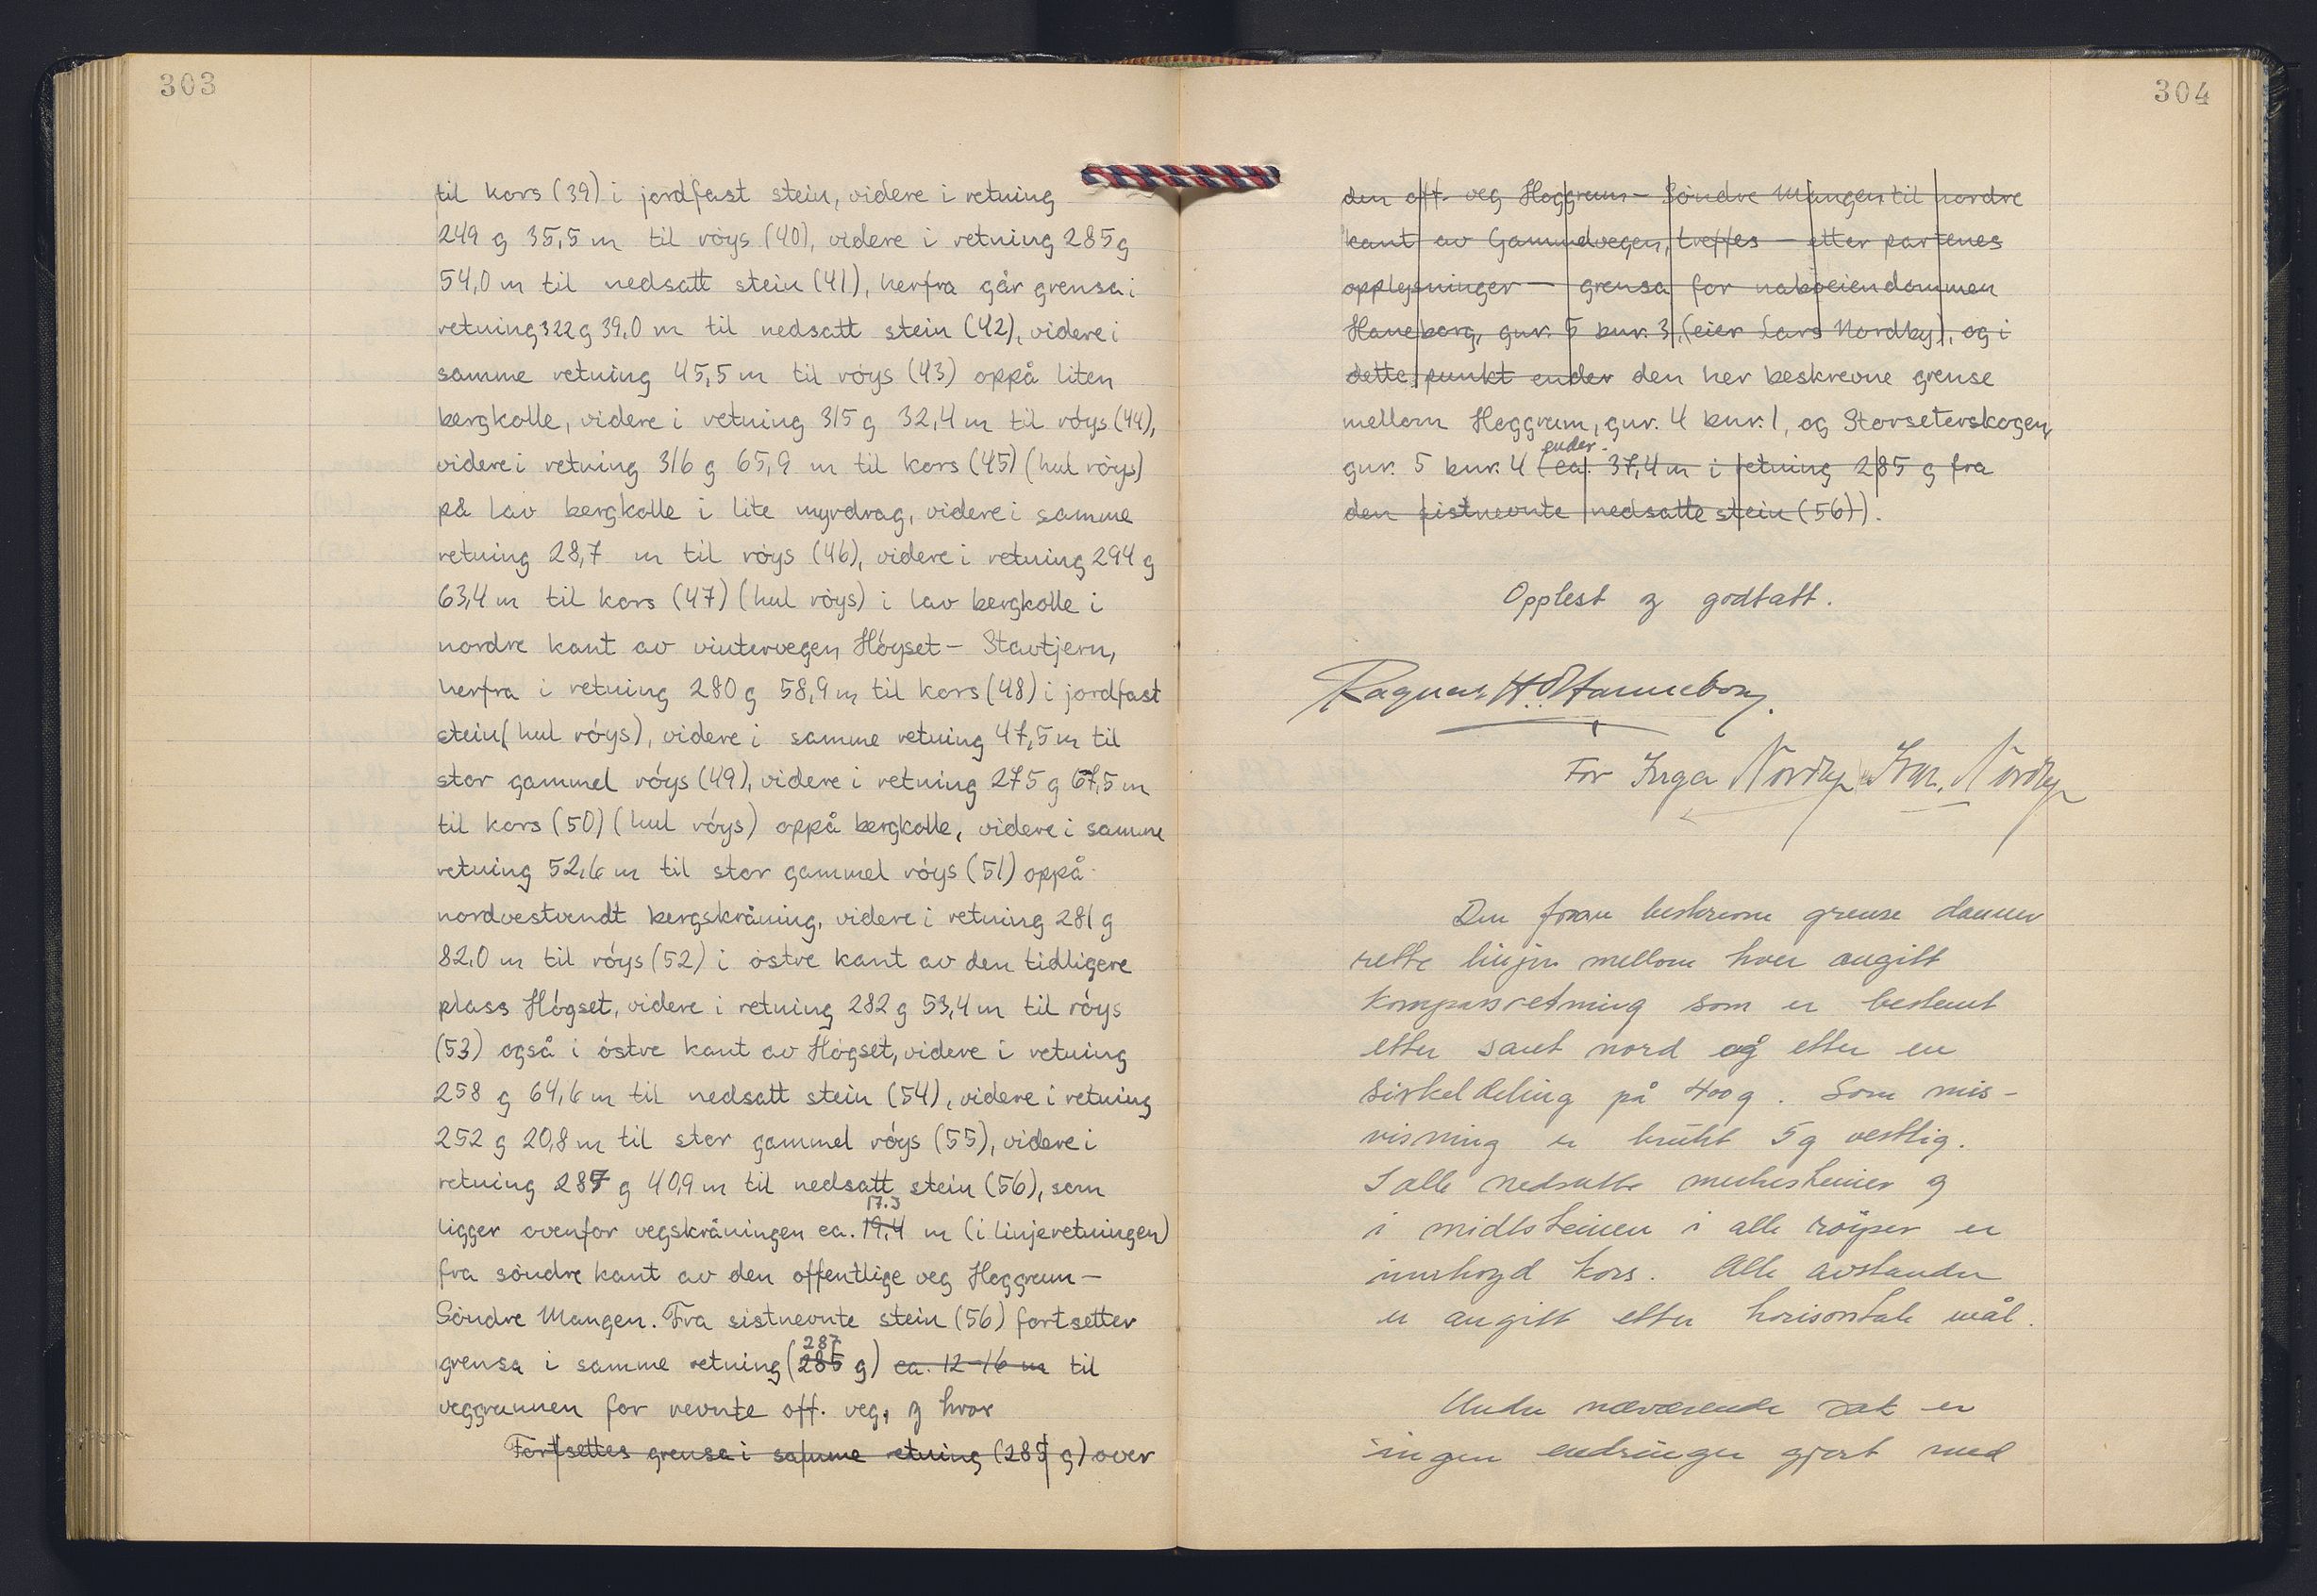 303
til kors (39) i jordfast stein, videre i retning
249 g 35,5 m til röys (40), videre i retning 285 g
54,0 m til nedsatt stein (41), herfra går grensa i
retning 322 g 39,0 m til nedsatt stein (42), videre i
samme retning 45,5 m til röys (43) oppå liten
bergkolle, videre i retning 315 g 32,4 m til röys (44),
videre i retning 316 g 65,9 m til kors (45) (hul röys)
på lav bergkolle i lite myrdrag, videre i samme
retning 28,7 m til röys (46), videre i retning 294 g
63,4 m til kors (47) (hul röys) i lav bergkolle i
nordre kant av vintervegen Höyset - Stavtjern,
herfra i retning 280 g 58,9 m til kors (48) i jordfast
stein (hul röys), videre i samme retning 47,5 m til
stor gammel röys (49), videre i retning 275 g 67,5 m
til kors (50) (hul röys) oppå bergkolle, videre i samme
retning 52,6 m til stor gammel röys (51) oppå
nordvestvendt bergskråning, videre i retning 281 g
82,0 m til röys (52) i östre kant av den tidligere
plass Högset, videre i retning 282 g 53,4 m til röys
(53) også i östre kant av Högset, videre i retning
258 g 64,6 m til nedsatt stein (54), videre i retning
252 g 20,8 m til stor gammel röys (55), videre i
retning 287 g 40,9 m til nedsatt stein (56), som
17.3
ligger ovenfor vegskråningen ca. 19,4 m (i linjeretningen)
fra söndre kant av den offentlige veg Heggrum -
Söndre Mangen. Fra sistnevnte stein (56) fortsetter
287
grensa i samme retning (285 g) ca. 12-16 m til
veggrunnen for nevnte off. veg, og hvor
Fortsettes grensa i samme retning (285 g) over
304
den off. veg Heggrum - Söndre Mangen til nordre
kant av Gammelvegen, treffes - etter partenes
opplysninger - grensa for naboeiendommen
Haneborg, gnr. 5 bnr. 3, (eier Lars Nordby), og i
dette punkt ender den her beskrevne grense
mellom Heggrum, gnr. 4 bnr. 1, og Storseterskogen,
ender.
gnr. 5 bnr. 4 (ca. 37,4 m i retning 285 g fra
den sistnevnte nedsatte stein (56)).
Opplest og godtatt.
Ragnar H. Hanneborg.
For Inga Nordby Nordby
Den foran beskrevne grense danner
rette linjer mellom hver angitt
kompassretning som er bestemt
etter sant nord og etter en
sirkeldeling på 400 g. Som mis-
visning er brukt 5 g vestlig.
I alle nedsatte merkesteiner og
i midtsteinen i alle röyser er
innhogd kors. Alle avstander
er angitt etter horisontale mål.
Under nærværende sak er
ingen endringer gjort med